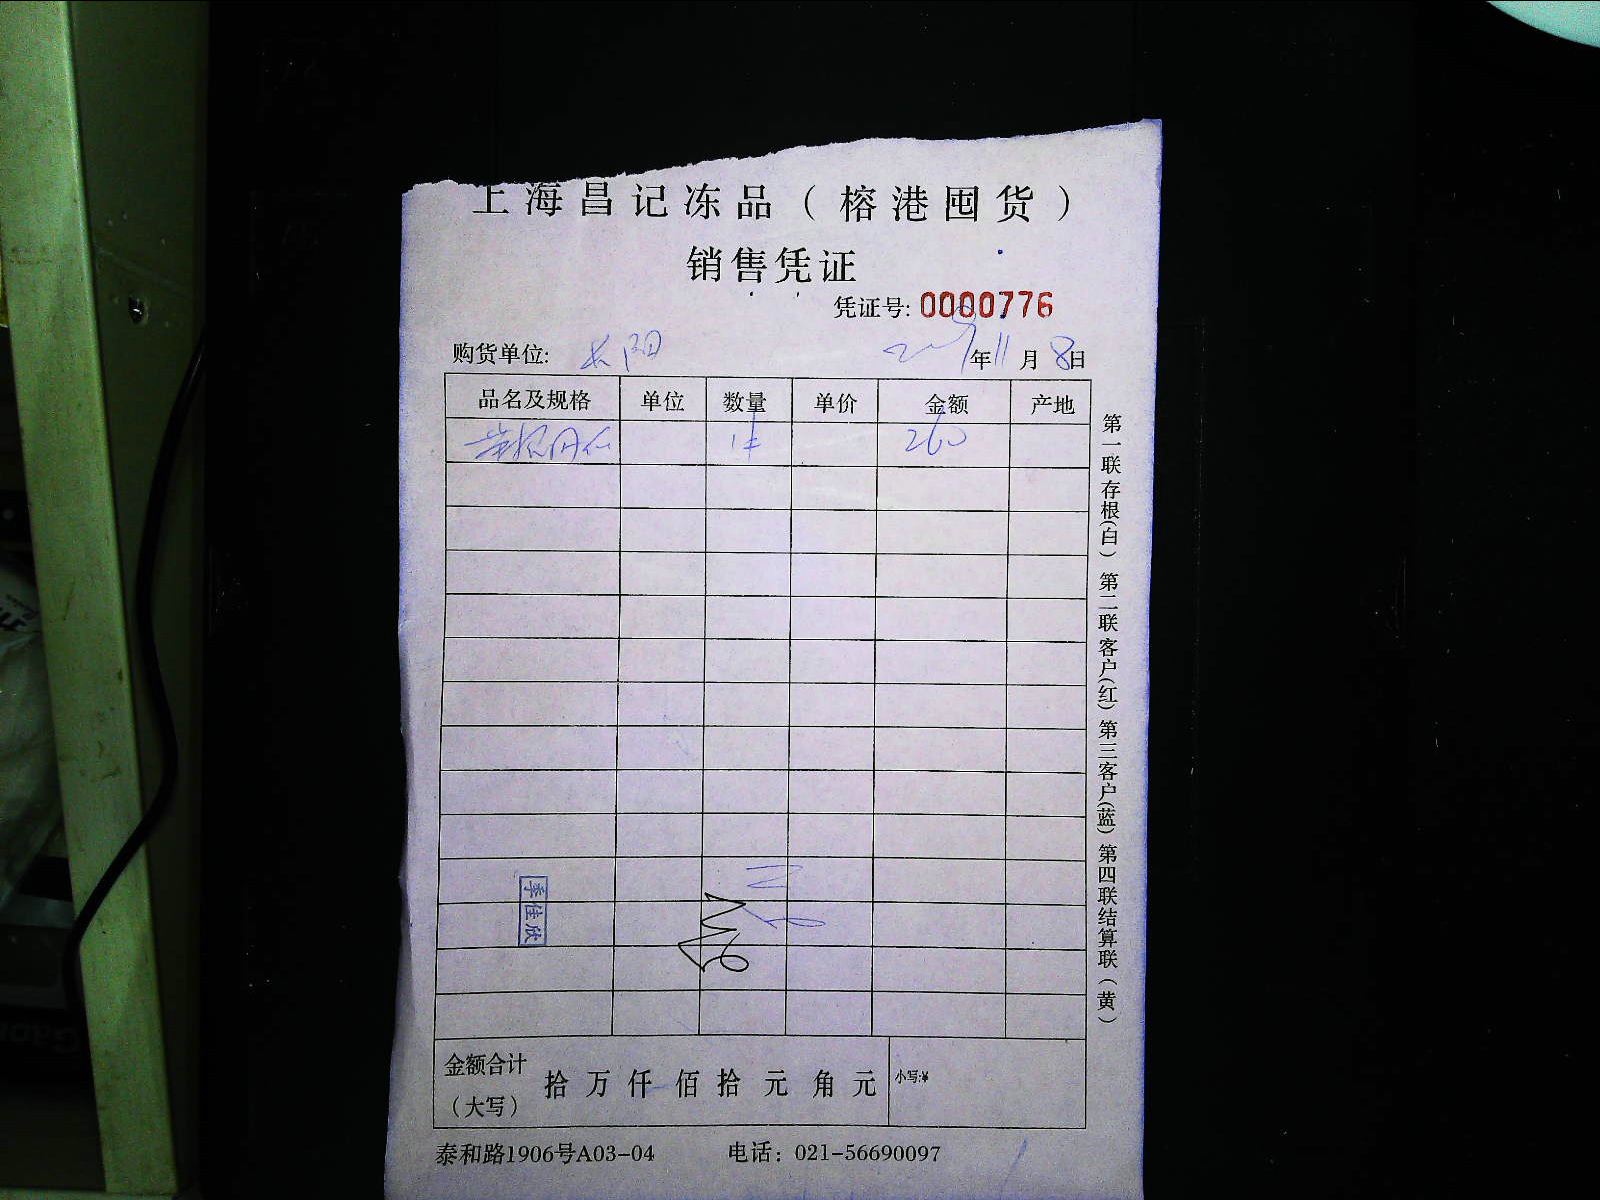 上海昌记冻品（榕港囤货）
销售凭证
凭证号: 0000776
购货单位: 长阳 2019年11月8日
品名及规格 单位 数量 单价 金额 产地
1件 260
第一联存根(白) 第二联客户(红) 第三客户(蓝) 第四联结算联(黄)
季佳欣
金额合计（大写） 拾万仟佰拾元角元 小写:¥
泰和路1906号A03-04 电话: 021-56690097